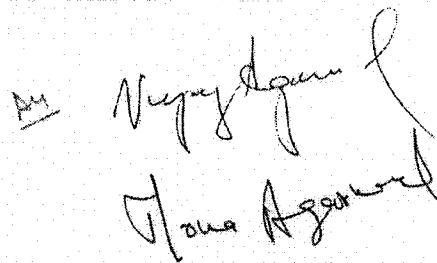 Vijay Agarwal
Mona Agarwal